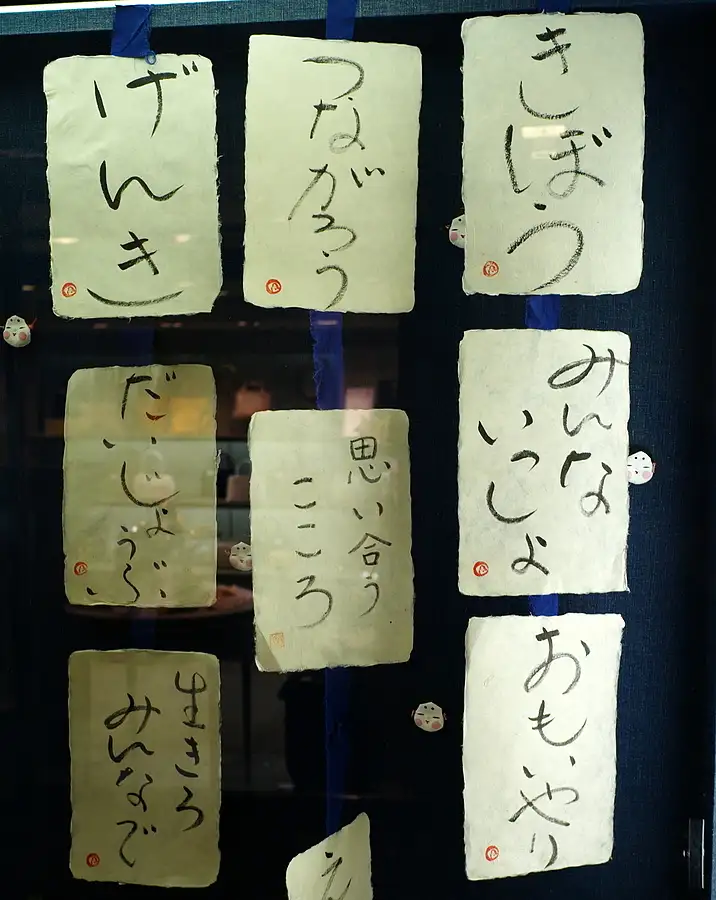 きぼう
みんな
いっしょ
おもいやり
つながろう
思い合う
こころ
げんき
だいじょうぶ
生きろ
みんなで